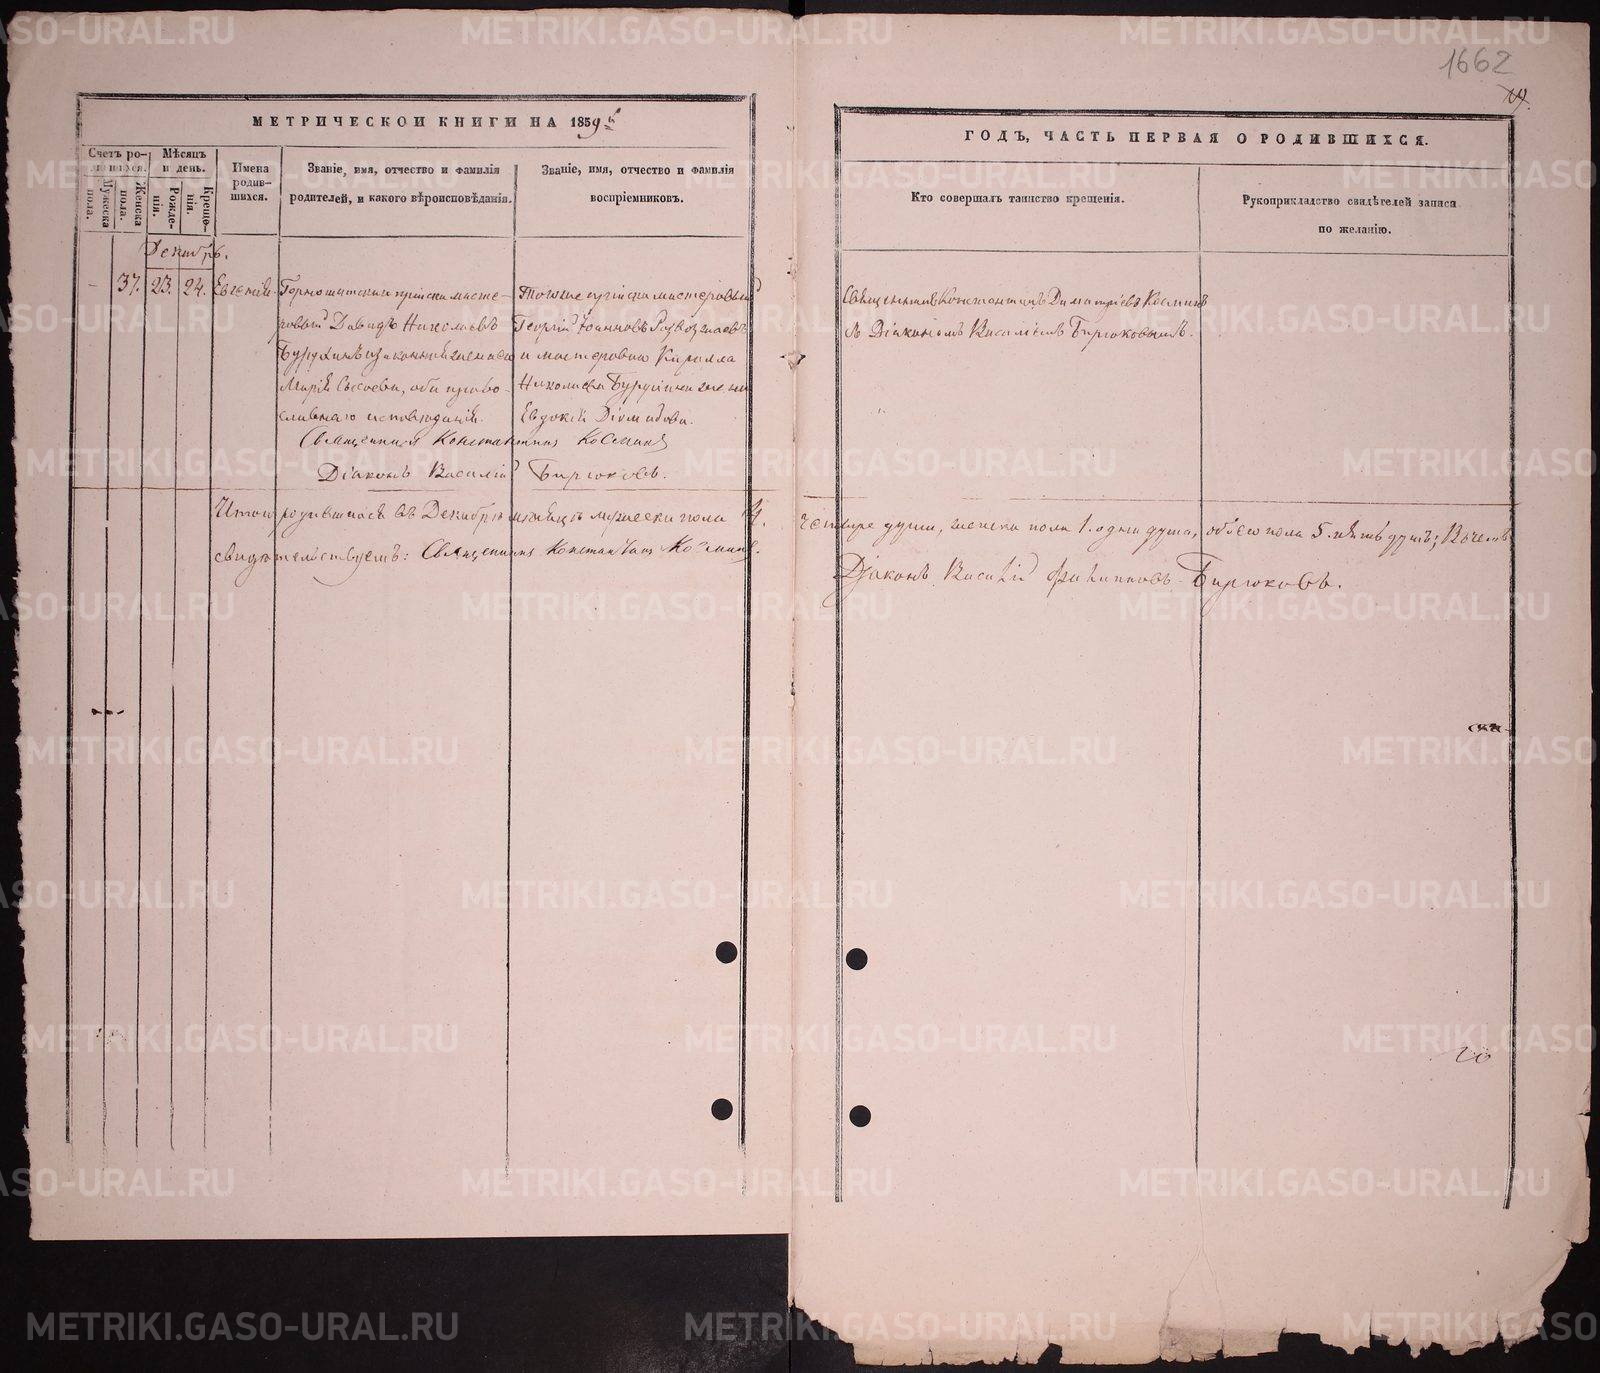 1662
МЕТРИЧЕСКОИ КНИГИ НА 1859
ГОДЪ, ЧАСТЬ ПЕРВАЯ О РОДИВШИХСЯ.
Счетъ родившихся.
Мужеска пола.
Женска пола.
Мѣсяцъ и день.
Рожденія.
Крещенія.
Имена родившихся.
Званіе, имя, отчество и фамилія
родителей, и какого вѣроисповѣданія.
Званіе, имя, отчество и фамилія
воспріемниковъ.
Кто совершалъ таинство крещенія.
Рукоприкладство свидѣтелей записа
по желанію.
Декабрь.
37. 23. 24. Евгенія.
Горнощитскаго пріиска масте-
ровый Давидъ Николаевъ
Бурухинъ и законная жена его
Марія Сысоева, оба право-
славнаго исповѣданія.
Тогоже пріиска мастеровый
Георгій Іоанновъ
и мастероваго Кирилла
Николаева Бурухина жена
Евдокія Діомидова.
Священникъ Константинъ Димитріевъ Космин
съ Діакономъ Василіемъ Бирюковымъ.
Священникъ Константинъ Косминъ
Діаконъ Василій Бирюковъ.
Итого родившихся въ Декабрѣ мѣсяцѣ мужеска пола 4.
четыре души, женска пола 1. одна душа, обоего пола 5. пять душъ; Въ чемъ
свидѣтельствуемъ: Священникъ Константинъ Косминъ.
Діаконъ Василій Филипповъ Бирюковъ.
20
METRIKI.GASO-URAL.RU